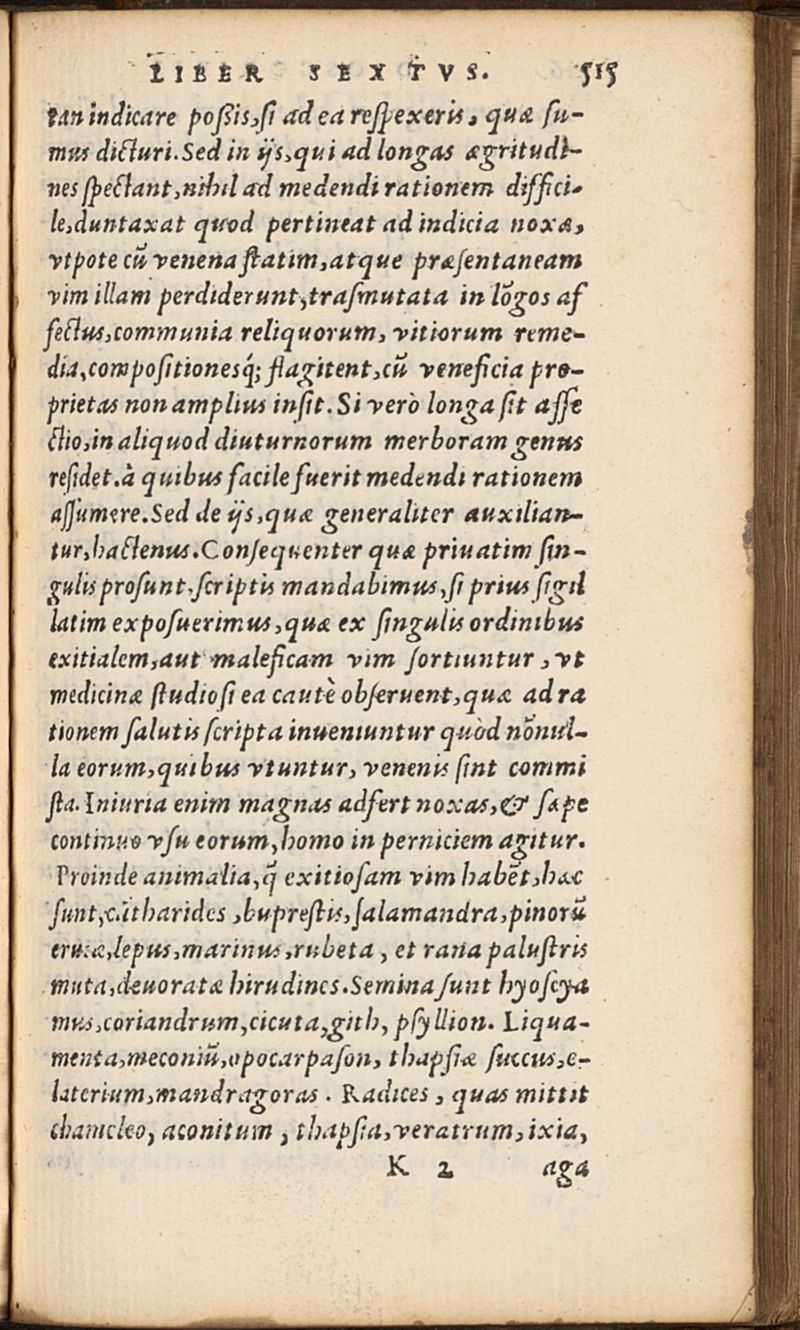 LIBER SEXTVS. 515
tan indicare poßis,si ad ea respexeris, quæ su-
mus dicturi.Sed in ijs,qui ad longas ægritudi-
nes spectant,nihil ad medendi rationem diffici-
le,duntaxat quod pertineat ad indicia noxæ,
vtpote cũ venena statim,atque præsentaneam
vim illam perdiderunt,trasmutata in lõgos af
fectus,communia reliquorum, vitiorum reme-
dia,compositionesq́; flagitent,cũ veneficia pro-
prietas non amplius insit. Si verò longa sit affe
ctio,in aliquod diuturnorum merboram genus
residet.à quibus facile fuerit medendi rationem
assumere.Sed de ijs,quæ generaliter auxilian-
tur,hactenus.Consequenter quæ priuatim sin-
gulis prosunt.scriptis mandabimus,si prius sigil
latim exposuerimus,quæ ex singulis ordinibus
exitialem,aut maleficam vim sortiuntur, vt
medicinæ studiosi ea cautè obseruent,quæ ad ra
tionem salutis scripta inueniuntur quòd nõnul-
la eorum,quibus vtuntur, venenis sint commi
sta. Iniuria enim magnas adfert noxas,& sæpe
continuo vsu eorum,homo in perniciem agitur.
Proinde animalia,q̃ exitiosam vim habẽt,hæc
sunt,cãtharides,buprestis,salamandra,pinorũ
erucæ,lepus,marinus,rubeta, et rana palustris
muta,deuoratæ hirudines.Semina sunt hyoscya
mus,coriandrum,cicuta,gith, psyllion. Liqua-
menta,meconiũ,opocarpason, thapsiæ succus,e-
laterium,mandragoras. Radices, quas mittit
chamcleo, aconitum, thapsia,veratrum,ixia,
K 2 aga